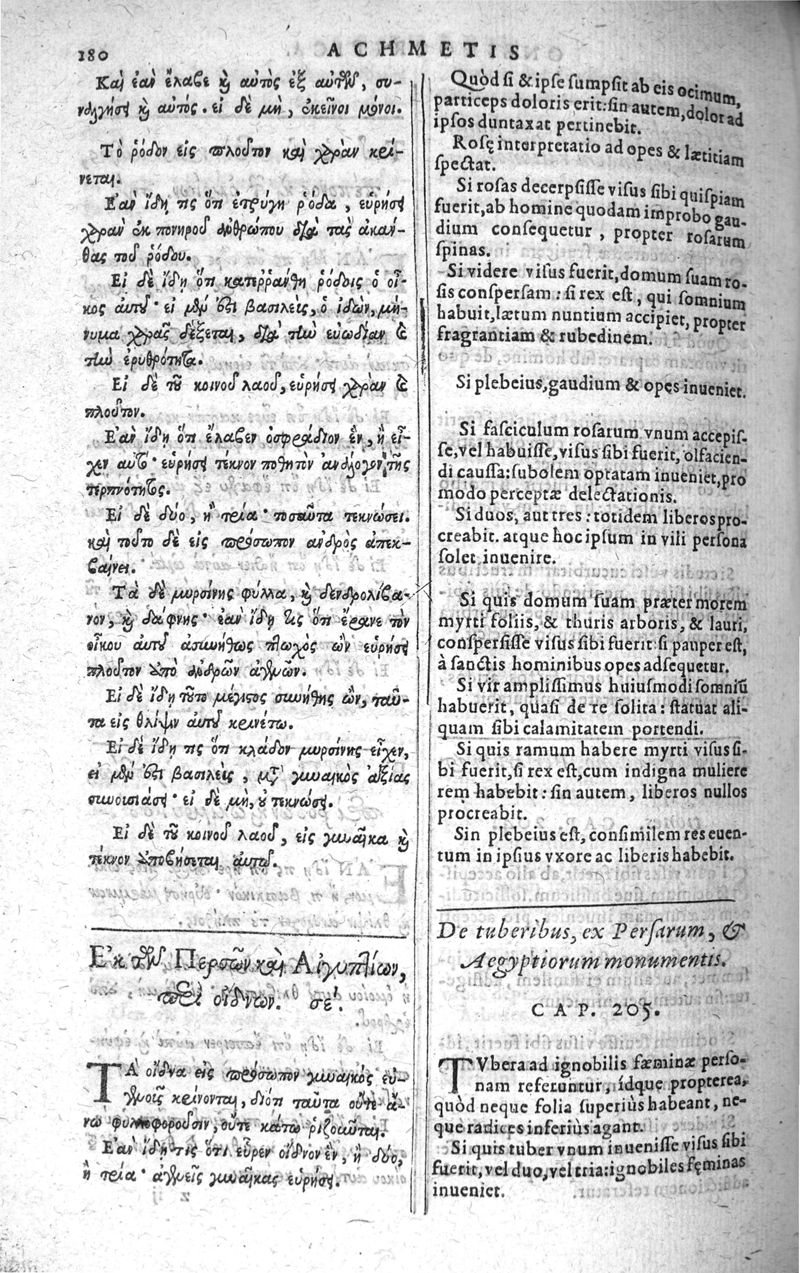 180
ACHMETIS
Καὶ ἐὰν ἔλαβε καὶ αὐτὸς ἐξ αὐτῶν, συ-
ναλγήσῃ καὶ αὐτός. εἰ δὲ μὴ, ἐκεῖνοι μόνοι.
Τὸ ῥόδον εἰς πλοῦτον καὶ χαρὰν κρί-
νεται.
Ἐὰν ἴδῃ τις ὅτι ἐτρύγη ῥόδα, εὑρήσῃ
χαρὰν ἐκ πονηροῦ ἀνθρώπου διὰ τὰς ἀκάν-
θας τοῦ ῥόδου.
Εἰ δὲ ἴδῃ ὅτι κατερράνθη ῥόδοις ὁ οἶ-
κος αὐτοῦ· εἰ μὲν ἔστι βασιλεὺς, ὁ ἰδὼν, μή-
νυμα χαρᾶς δέξεται, διὰ τὴν εὐωδίαν καὶ
τὴν ἐρυθρότητα.
Εἰ δὲ τοῦ κοινοῦ λαοῦ, εὑρήσῃ χαρὰν καὶ
πλοῦτον.
Ἐὰν ἴδῃ ὅτι ἔλαβεν ὀσφράδιον ἓν, ἢ εἶ-
χεν αὐτό· εὑρήσῃ τέκνον ποθητὸν ἀνάλογον τῆς
τερπνότητος.
Εἰ δὲ δύο, ἢ τρία· τοσαῦτα τεκνώσει.
καὶ τοῦτο δὲ εἰς πρόσωπον ἀνδρὸς ἀπεκ-
βαίνει.
Τὰ δὲ μυρσίνης φύλλα, καὶ δενδρολίβα-
νον, καὶ δάφνης· ἐὰν ἴδῃ τις ὅτι ἔρρανε τὸν
οἶκον αὐτοῦ ἀσυνήθως πτωχὸς ὢν εὑρήσῃ
πλοῦτον ἀπὸ ἀνδρῶν ἁγίων.
Εἰ δὲ ἴδῃ τοῦτο μέγιστος συνήθης ὢν, ταῦ-
τα εἰς θλίψιν αὐτοῦ κρινέτω.
Εἰ δὲ ἴδῃ τις ὅτι κλάδον μυρσίνης εἶχεν,
εἰ μὲν ἔστι βασιλεὺς, μετὰ γυναικὸς ἀναξίας
συνουσιάσῃ· εἰ δὲ μὴ, οὐ τεκνώσῃ.
Εἰ δὲ τοῦ κοινοῦ λαοῦ, εἰς γυναῖκα καὶ
τέκνον ἀποβήσεται αὐτοῦ.
Ἐκ τῶν Περσῶν καὶ Αἰγυπτίων,
περὶ οἴδνων. σε΄.
ΤΑ οἶδνα εἰς πρόσωπον γυναικὸς εὐ-
κρίνονται, διότι ταῦτα οὔτε ἄ-
νω φυλλοφοροῦσιν, οὔτε κάτω ῥιζοῦνται.
Ἐὰν ἴδῃ τις ὅτι εὗρεν οἶδνον ἓν, ἢ δύο,
ἢ τρία· γυναῖκας εὑρήσῃ.
Quòd si & ipse sumpsit ab eis ocimum,
particeps doloris erit: sin autem, dolor ad
ipsos duntaxat pertinebit.
Rosę interpretatio ad opes & lætitiam
spectat.
Si rosas decerpsisse visus sibi quispiam
fuerit, ab homine quodam improbo gau-
dium consequetur, propter rosarum
spinas.
Si videre visus fuerit, domum suam ro-
sis conspersam: si rex est, qui somnium
habuit, lætum nuntium accipiet, propter
fragrantiam & rubedinem.
Si plebeius, gaudium & opes inueniet.
Si fasciculum rosarum vnum accepis-
se, vel habuisse, visus sibi fuerit, olfacien-
di caussa: subolem optatam inueniet, pro
modo perceptæ delectationis.
Si duos, aut tres: totidem liberos pro-
creabit. atque hoc ipsum in vili persona
solet inuenire.
Si quis domum suam præter morem
myrti foliis, & thuris arboris, & lauri,
conspersisse visus sibi fuerit: si pauper est,
à sanctis hominibus opes adsequetur.
Si vir amplissimus huiusmodi somniũ
habuerit, quasi de re solita: statuat ali-
quam sibi calamitatem portendi.
Si quis ramum habere myrti visus si-
bi fuerit, si rex est, cum indigna muliere
rem habebit: sin autem, liberos nullos
procreabit.
Sin plebeius est, consimilem res euen-
tum in ipsius vxore ac liberis habebit.
De tuberibus, ex Persarum, &
Aegyptiorum monumentis.
CAP. 205.
TVbera ad ignobilis fæminæ perso-
nam referuntur, idque propterea,
quòd neque folia superius habeant, ne-
que radices inferius agant.
Si quis tuber vnum inuenisse visus sibi
fuerit, vel duo, vel tria: ignobiles fęminas
inueniet.